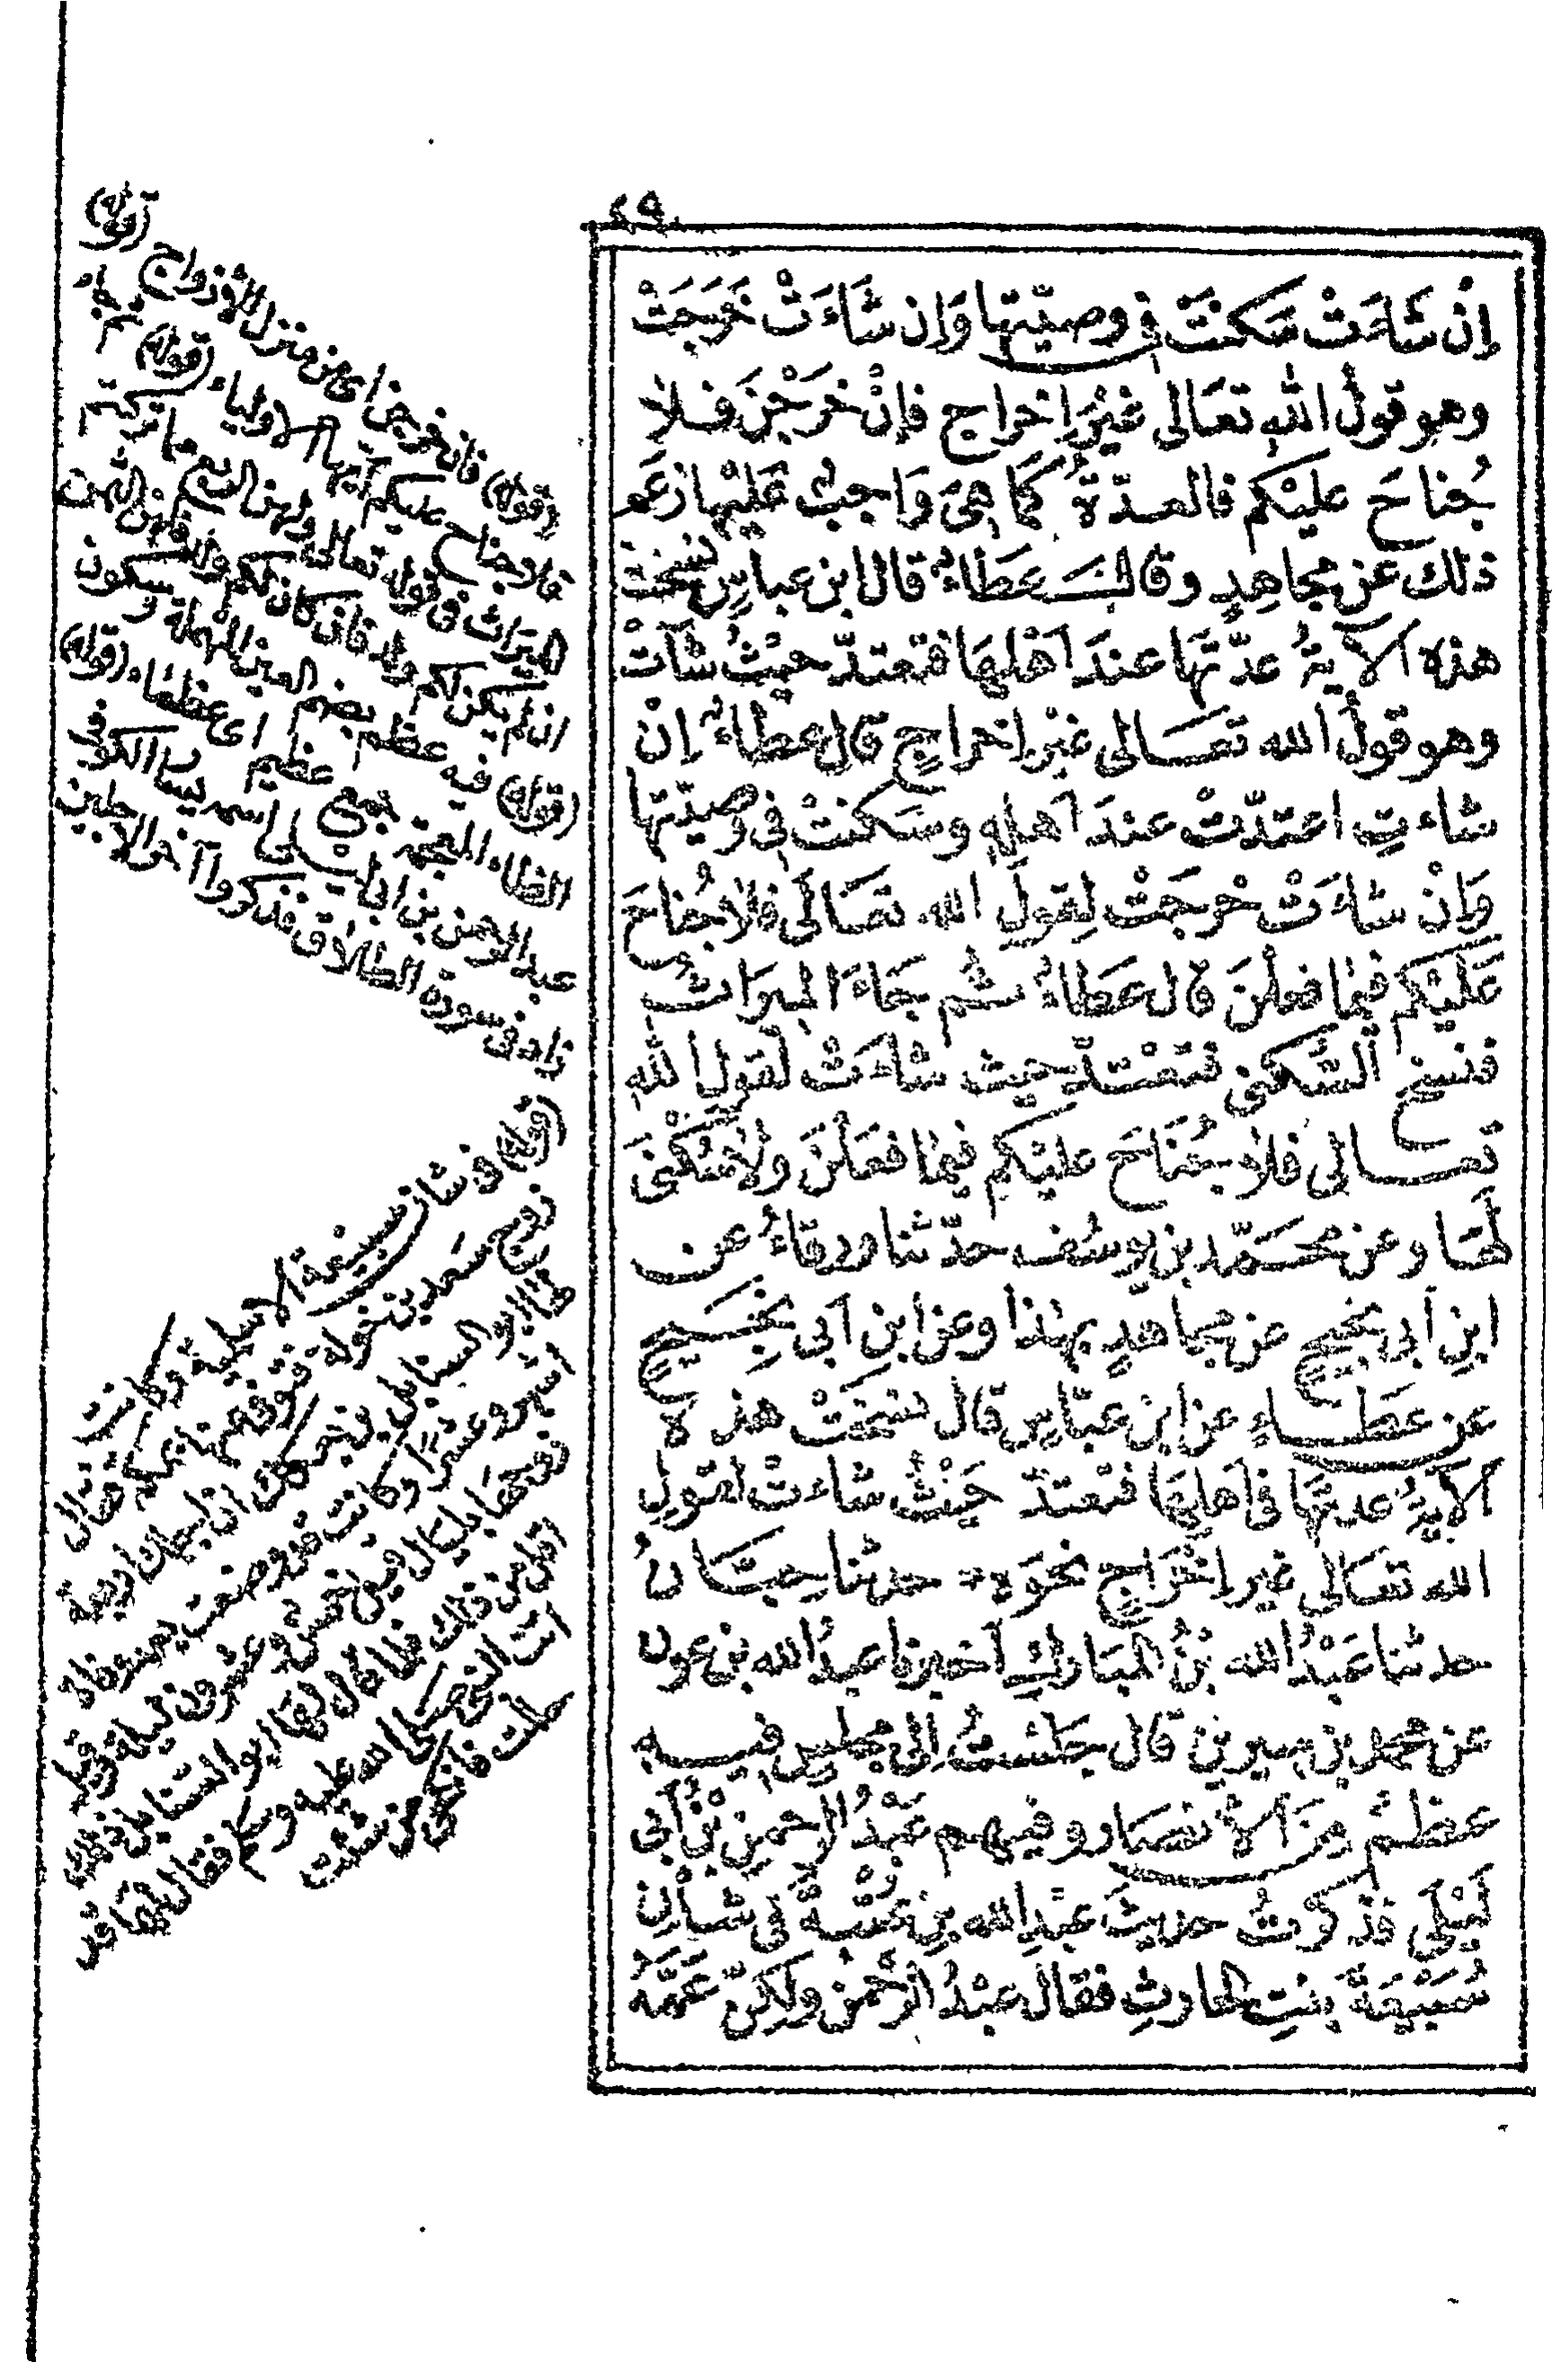 ٤٩
إنْ شَاءَتْ سَكَنَتْ في وصيّتِها وَإن شَاءَتْ خَرَجَتْ
وهو قولُ اللهِ تعَالى غَيْرَ إخراجٍ فإنْ خَرَجْنَ فَلا
جُناحَ عليْكم فالعدّةُ كَمَا هِيَ وَاجِبٌ عَلَيْها زعَم
ذلك عن مجاهِدٍ وقالَ عَطَاءٌ قال ابن عباسٍ نَسَخَتْ
هذه الآيةُ عدّتَها عندَ أهْلِهَا فتعتدّ حيْثُ شآتْ
وهو قولُ الله تعَالى غَيْرَ إخراجٍ قال عطاءٌ إنْ
شاءتِ اعتدّتْ عندَ أهلِهِ وسَكنتْ في وصيّتها
وَإنْ شاءَتْ خرجَتْ لِقولِ الله تعَالَى فلا جُناحَ
عَلَيْكم فيما فعلْنَ قال عَطَاءٌ ثم جَاءَ الميرَاثُ
فنسخ السُّكنى فتعْتدّ حيث شاءَتْ لقولِ اللهِ
تعالى فلا جُنَاحَ عليْكم فيما فعَلْنَ ولا سُكْنَى
لَهَا وعن محَمّد بن يوسُف حدّثنا ورقاءُ عن
ابنِ أبي نجيحٍ عن مجاهدٍ بهذا وعن ابنِ أبي نجِيحٍ
عن عَطَاءٍ عن ابن عبّاسٍ قال نسَخَتْ هذه
الآيةُ عدتَها في أهلِهَا فتعْتدّ حَيْثُ شاءتْ لقولِ
الله تعَالى غير إخْرَاجٍ نحوَه حدثنا حِبَّانُ
حدثنا عَبْدُ الله بْنُ المبَاركِ أخبرنا عبدُ الله بن عون
عن محمد بن سيرين قال جلَسْتُ إلى مجلسٍ فيه
عظْمٌ منَ الأنصَار وفيهم عَبْدُ الرحمن بْنُ أبي
لَيْلَى فذكرتُ حديثَ عبْدِ الله بنِ عُتْبةَ في شأنِ
سُبَيْعَةَ بنتِ الحارثِ فقال عبْدُ الرحْمن ولكنّ عَمَّهُ
(قوله)
(قوله) فان خرجن اى من منزل الازواج
فلا جناح عليكم ايها الاولياء (قوله) ثم جاء
الميراث فى قوله تعالى ولهن الربع مما تركتم
ان لم يكن لكم ولد فان كان لكم ولد فلهن الثمن
(قوله) فيه عظم بضم العين المهملة وسكون
الظاء المعجمة جمع عظيم اى عظماء (قوله)
عبد الرحمن بن ابى ليلى اسمه يسار الكوفى
زاد فى سورة الطلاق فذكروا آخر الاجلين
(قوله) فى شان سبيعة الاسلمية وكانت
زوج سعد بن خولة فتوفى عنها بمكة فقال
لها ابو السنابل بن بعكك ان اجلك اربعة
اشهر وعشرا وكانت قد وضعت بعد وفاة
زوجها بليال قيل خمس وعشرون ليلة وقيل
اقل من ذلك فلما قال لها ابو السنابل ذلك
اتت النبى صلى الله عليه وسلم فقال لها قد
حللت فانكحى من شئت